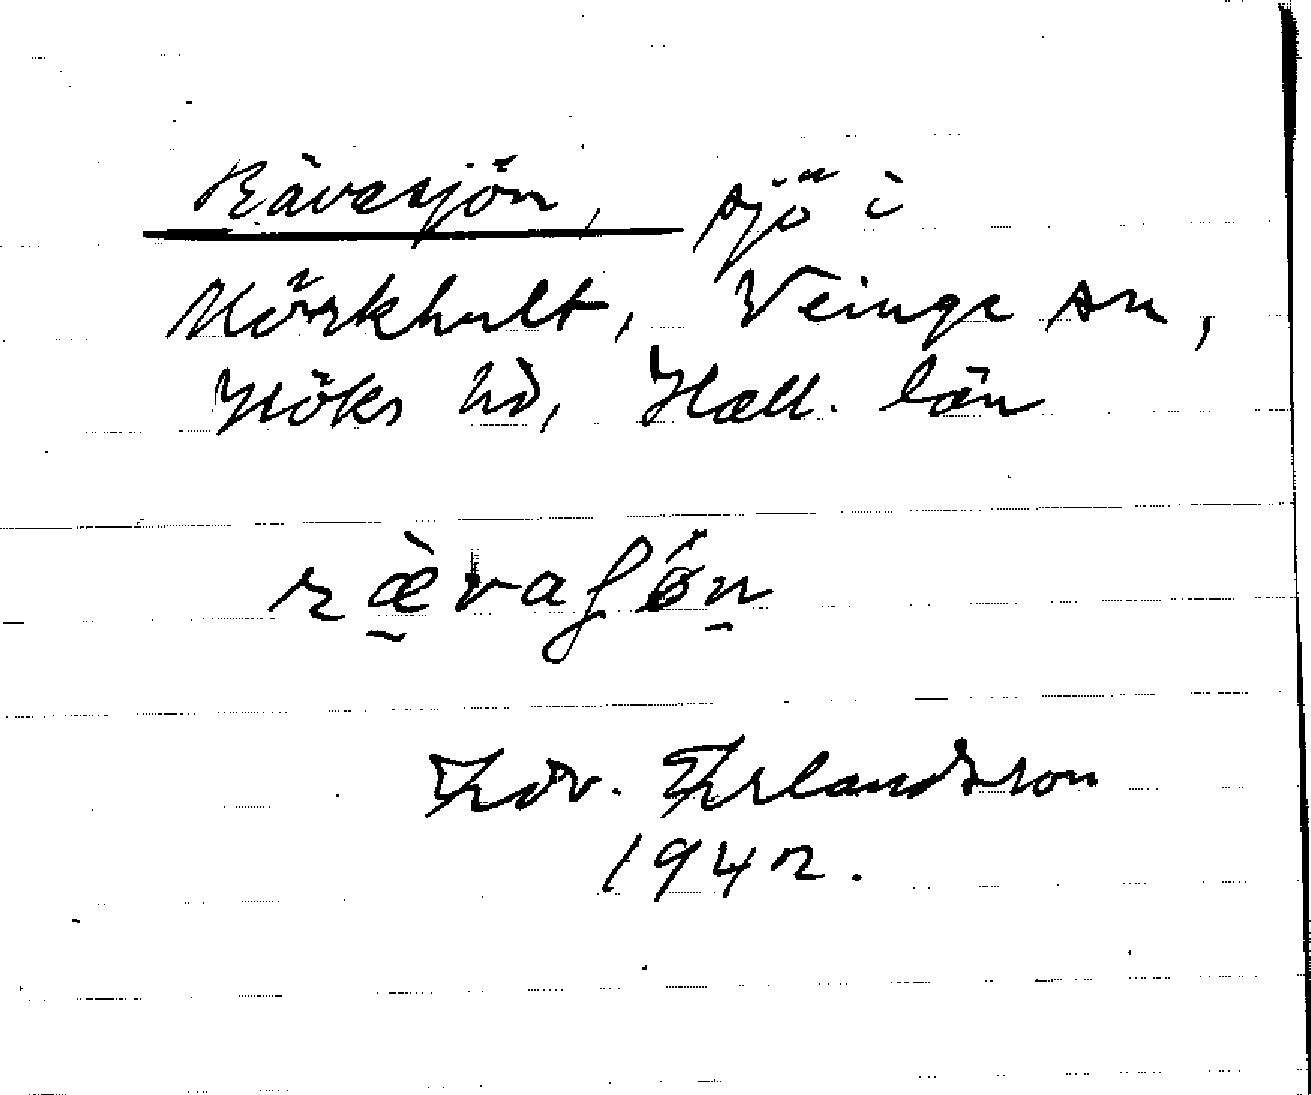 Rävasjön, sjö i
Mörkhult, Veinge sn,
Höks hd, Hall. län
ræ̀vaʃǿn
Edv. Erlandsson
1942.